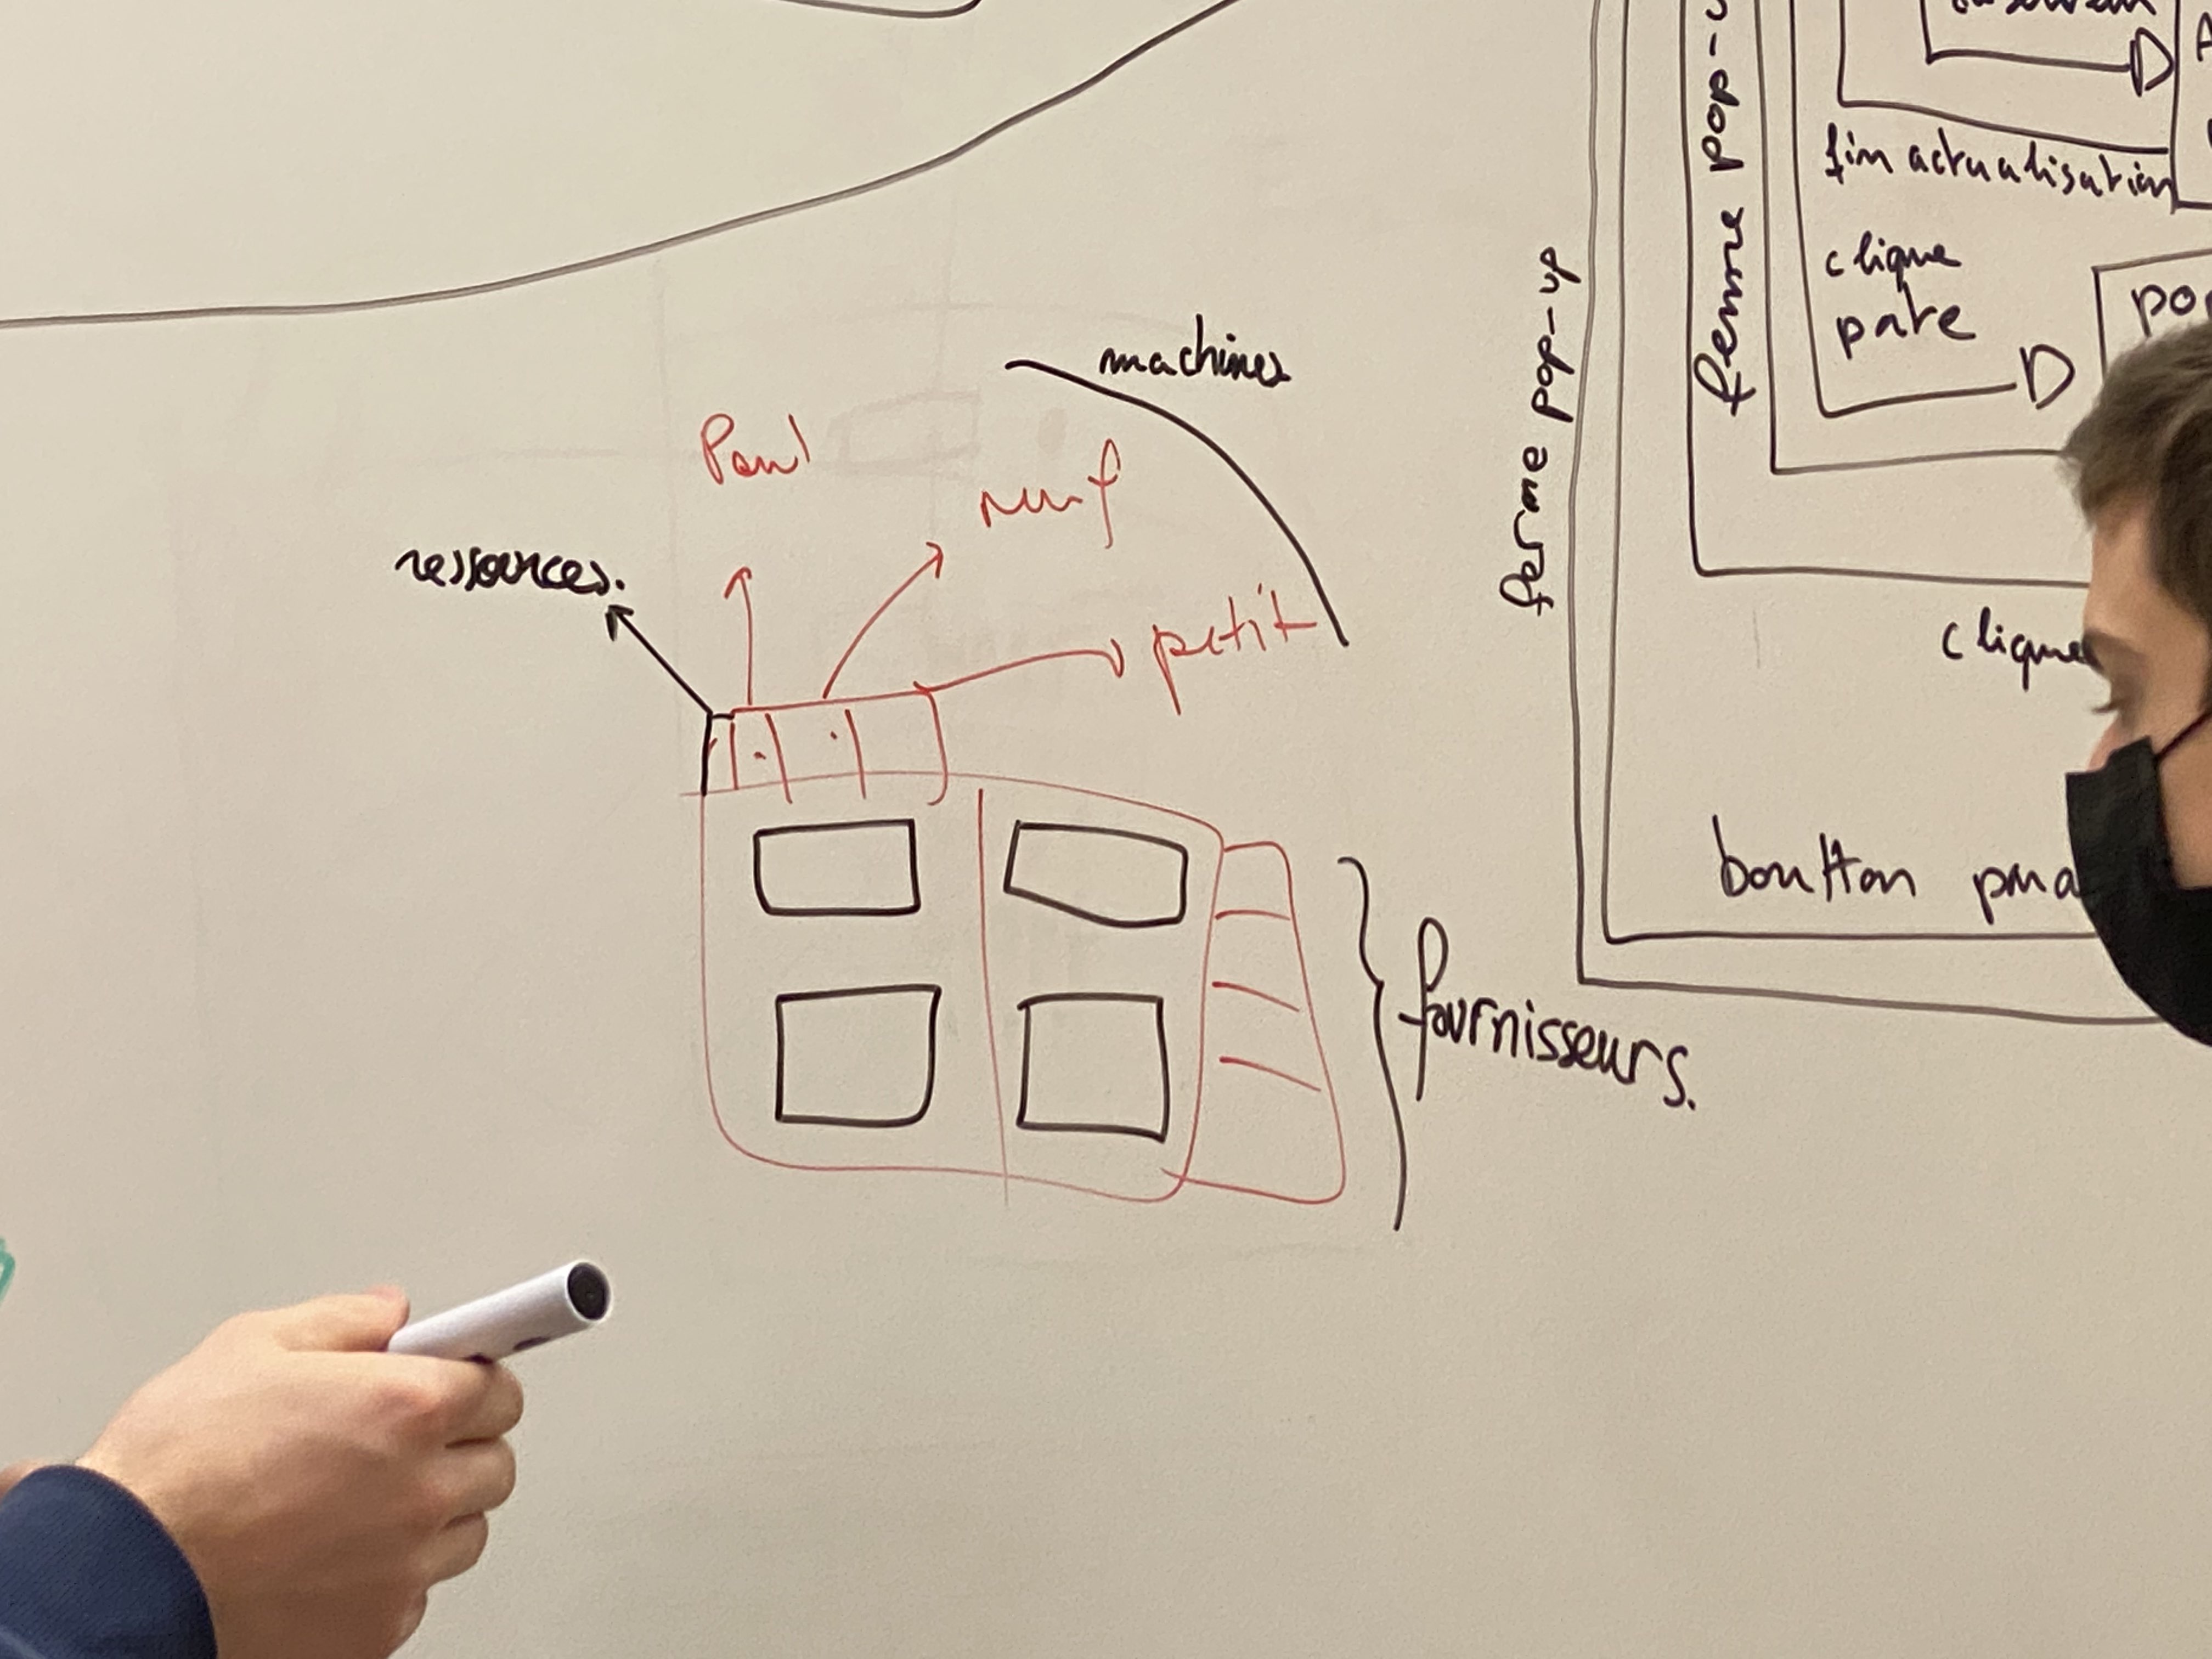 machines
Paul
neuf
ressources.
petit
fournisseurs.
ferme pop-up
ferme pop-u
fin actualisation
clique
pate
po
clique
boutton